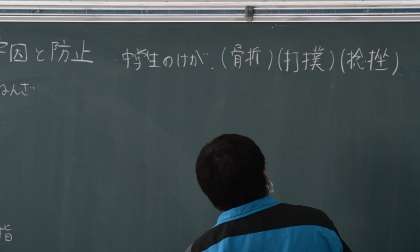 因と防止
中学生のけが．(骨折)(打撲)(捻挫)
ねんざ
指